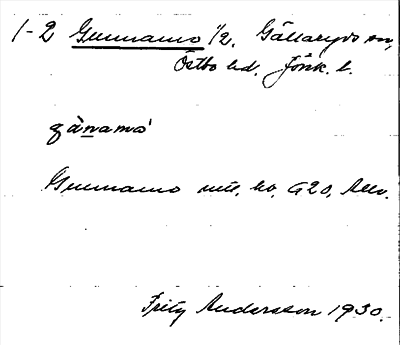 1-2 Gunnamo 1/2, Gällaryds sn,
Östbo hd. Jönk. l.
gànamó
Gunnamo mtl. by, G20, Allv.
Fritz Andersson 1930.